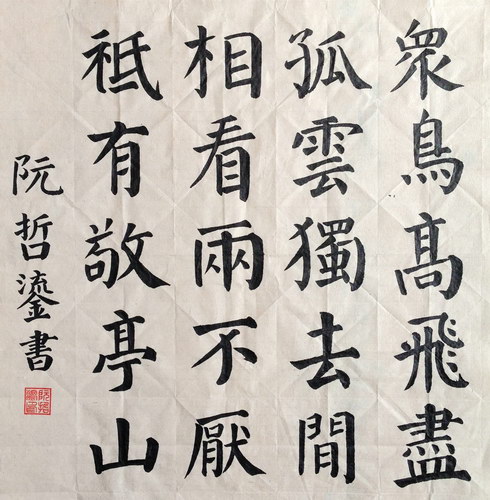 眾鳥高飛盡
孤雲獨去閒
相看兩不厭
祗有敬亭山
阮哲鎏書